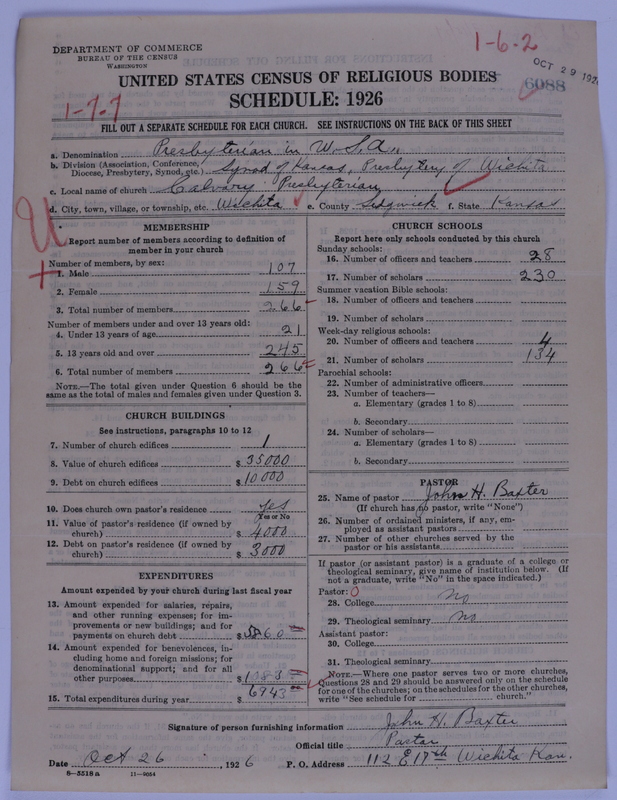 DEPARTMENT OF COMMERCE
BUREAU OF THE CENSUS
WASHINGTON
1-6-2
OCT 29 192
6088
UNITED STATES CENSUS OF RELIGIOUS BODIES
SCHEDULE: 1926
1-7-7
FILL OUT A SEPARATE SCHEDULE FOR EACH CHURCH. SEE INSTRUCTIONS ON THE BACK OF THIS SHEET
a. Denomination Presbyterian in U.S.A.
b. Division (Association, Conference, Diocese, Presbytery, Synod, etc.) Synod of Kansas, Presbytery of Wichita
c. Local name of church Calvary Presbyterian
d. City, town, village, or township, etc. Wichita e. County Sedgwick f. State Kansas
U
MEMBERSHIP
Report number of members according to definition of
member in your church
Number of members, by sex:
1. Male 107
2. Female 159
3. Total number of members 266
Number of members under and over 13 years old:
4. Under 13 years of age 21
5. 13 years old and over 245
6. Total number of members 266
NOTE.—The total given under Question 6 should be the
same as the total of males and females given under Question 3.
CHURCH BUILDINGS
See instructions, paragraphs 10 to 12
7. Number of church edifices 1
8. Value of church edifices $ 35000
9. Debt on church edifices $ 10000
10. Does church own pastor's residence Yes
Yes or No
11. Value of pastor's residence (if owned by
church) $ 4000
12. Debt on pastor's residence (if owned by
church) $ 3000
EXPENDITURES
Amount expended by your church during last fiscal year
13. Amount expended for salaries, repairs,
and other running expenses; for im-
provements or new buildings; and for
payments on church debt $ 5860
14. Amount expended for benevolences, in-
cluding home and foreign missions; for
denominational support; and for all
other purposes $ 1083
15. Total expenditures during year $ 6943
CHURCH SCHOOLS
Report here only schools conducted by this church
Sunday schools:
16. Number of officers and teachers 28
17. Number of scholars 230
Summer vacation Bible schools:
18. Number of officers and teachers
19. Number of scholars
Week-day religious schools:
20. Number of officers and teachers 4
21. Number of scholars 134
Parochial schools:
22. Number of administrative officers
23. Number of teachers—
a. Elementary (grades 1 to 8)
b. Secondary
24. Number of scholars—
a. Elementary (grades 1 to 8)
b. Secondary
PASTOR
25. Name of pastor John H. Baxter
(If church has no pastor, write "None")
26. Number of ordained ministers, if any, em-
ployed as assistant pastors
27. Number of other churches served by the
pastor or his assistants
If pastor (or assistant pastor) is a graduate of a college or
theological seminary, give name of institution below. (If
not a graduate, write "No" in the space indicated.)
Pastor: 0
28. College No
29. Theological seminary No
Assistant pastor:
30. College
31. Theological seminary
NOTE.—Where one pastor serves two or more churches,
Questions 28 and 29 should be answered only on the schedule
for one of the churches; on the schedules for the other churches,
write "See schedule for church."
Signature of person furnishing information John H. Baxter
Official title Pastor
Date Oct 26, 1926 P. O. Address 112 E 18th Wichita Kan.
8—5518 a 11—9054